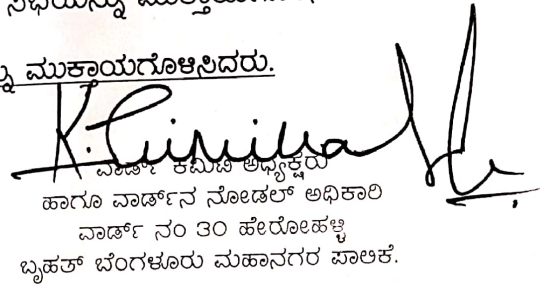 ಸಭೆಯನ್ನು
ಮುಕ್ತಾಯಗೊಳಿಸಿದರು.
ವಾರ್ಡ್ ಕಮಿಟಿ ಅಧ್ಯಕ್ಷರು
ಹಾಗೂ ವಾರ್ಡ್‌ನ ನೋಡಲ್ ಅಧಿಕಾರಿ
ವಾರ್ಡ್ ನಂ 30 ಹೇರೋಹಳ್ಳಿ
ಬೃಹತ್ ಬೆಂಗಳೂರು ಮಹಾನಗರ ಪಾಲಿಕೆ.